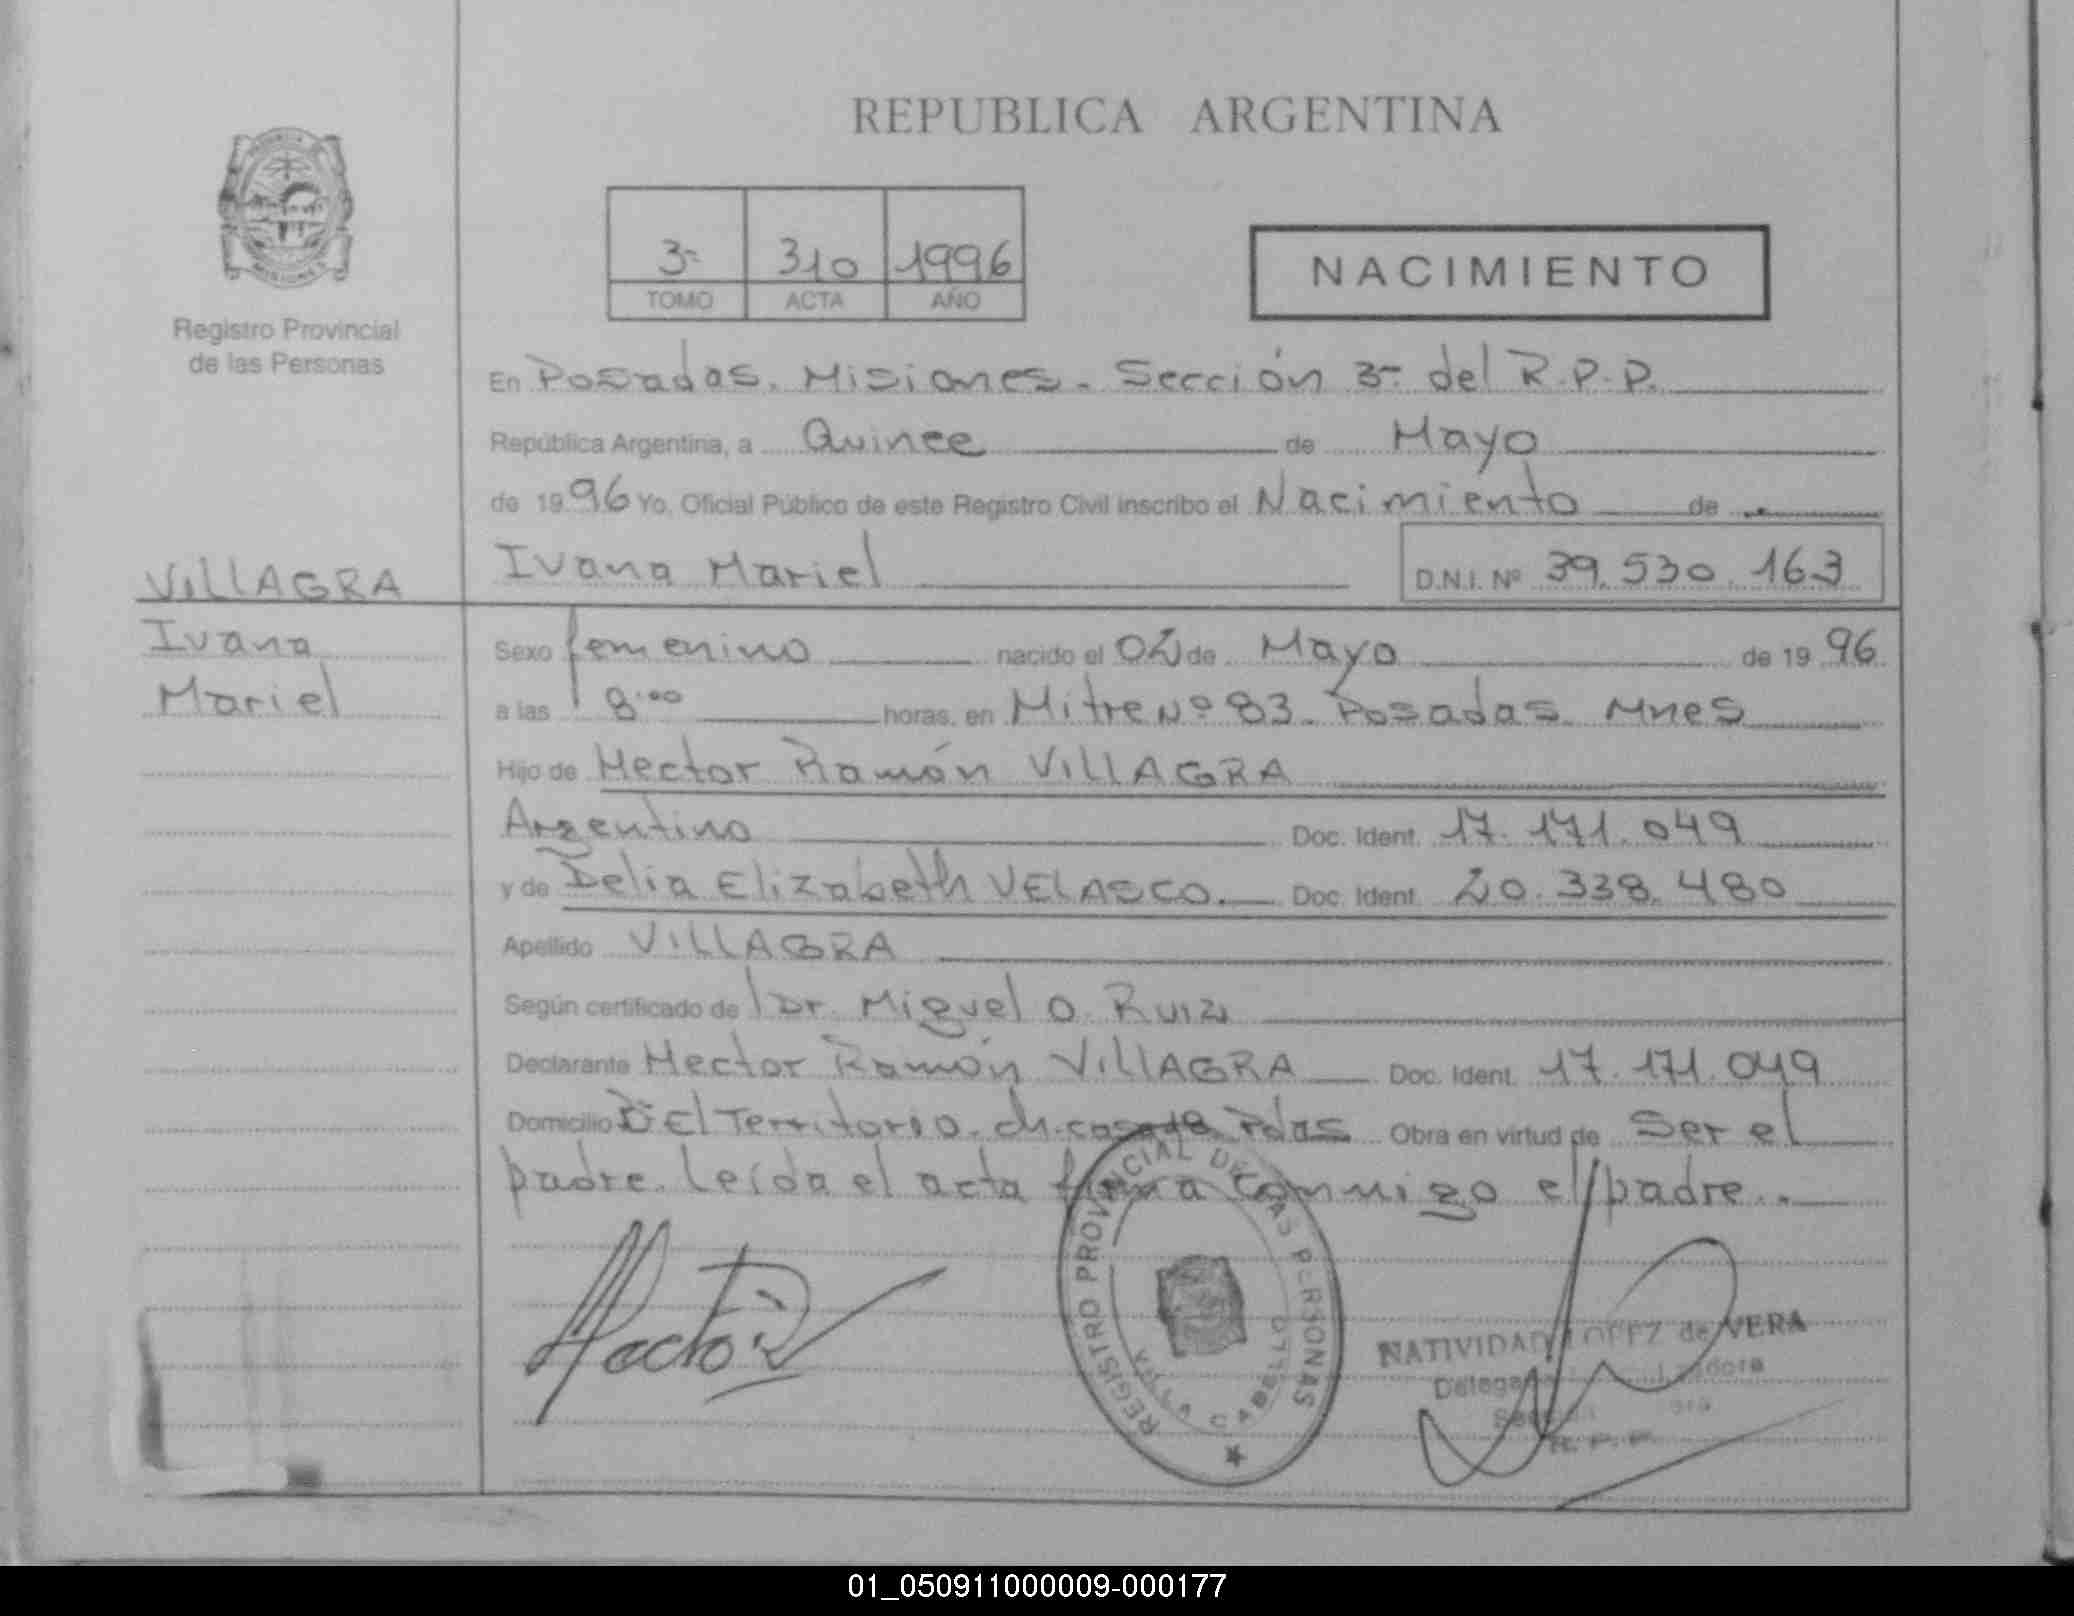 REPUBLICA ARGENTINA
3ª 310 1996
TOMO ACTA AÑO
NACIMIENTO
Registro Provincial
de las Personas
En Posadas. Misiones. Sección 3ª del R.P.P.
República Argentina, a Quince de Mayo
de 1996 Yo, Oficial Público de este Registro Civil inscribo el Nacimiento de
Ivana Mariel D.N.I. Nº 39.530.163
VILLAGRA
Ivana
Mariel
Sexo femenino nacido el 02 de Mayo de 1996
a las 8:00 horas. en Mitre Nº 83. Posadas. Mnes
Hijo de Hector Ramón VILLAGRA
Argentino Doc. Ident. 17.171.049
y de Delia Elizabeth VELASCO. Doc. Ident. 20.338.480
Apellido VILLAGRA
Según certificado de Dr. Miguel O. Ruiz
Declarante Hector Ramón VILLAGRA Doc. Ident. 17.171.049
Domicilio Bº El Territorio. ch. Pdas Obra en virtud de Ser el
padre. Leída el acta firma conmigo el padre.
Hector
REGISTRO PROVINCIAL DE LAS PERSONAS
VILLA CABELLO
NATIVIDAD LOPEZ de VERA
R.P.P.
01_050911000009-000177